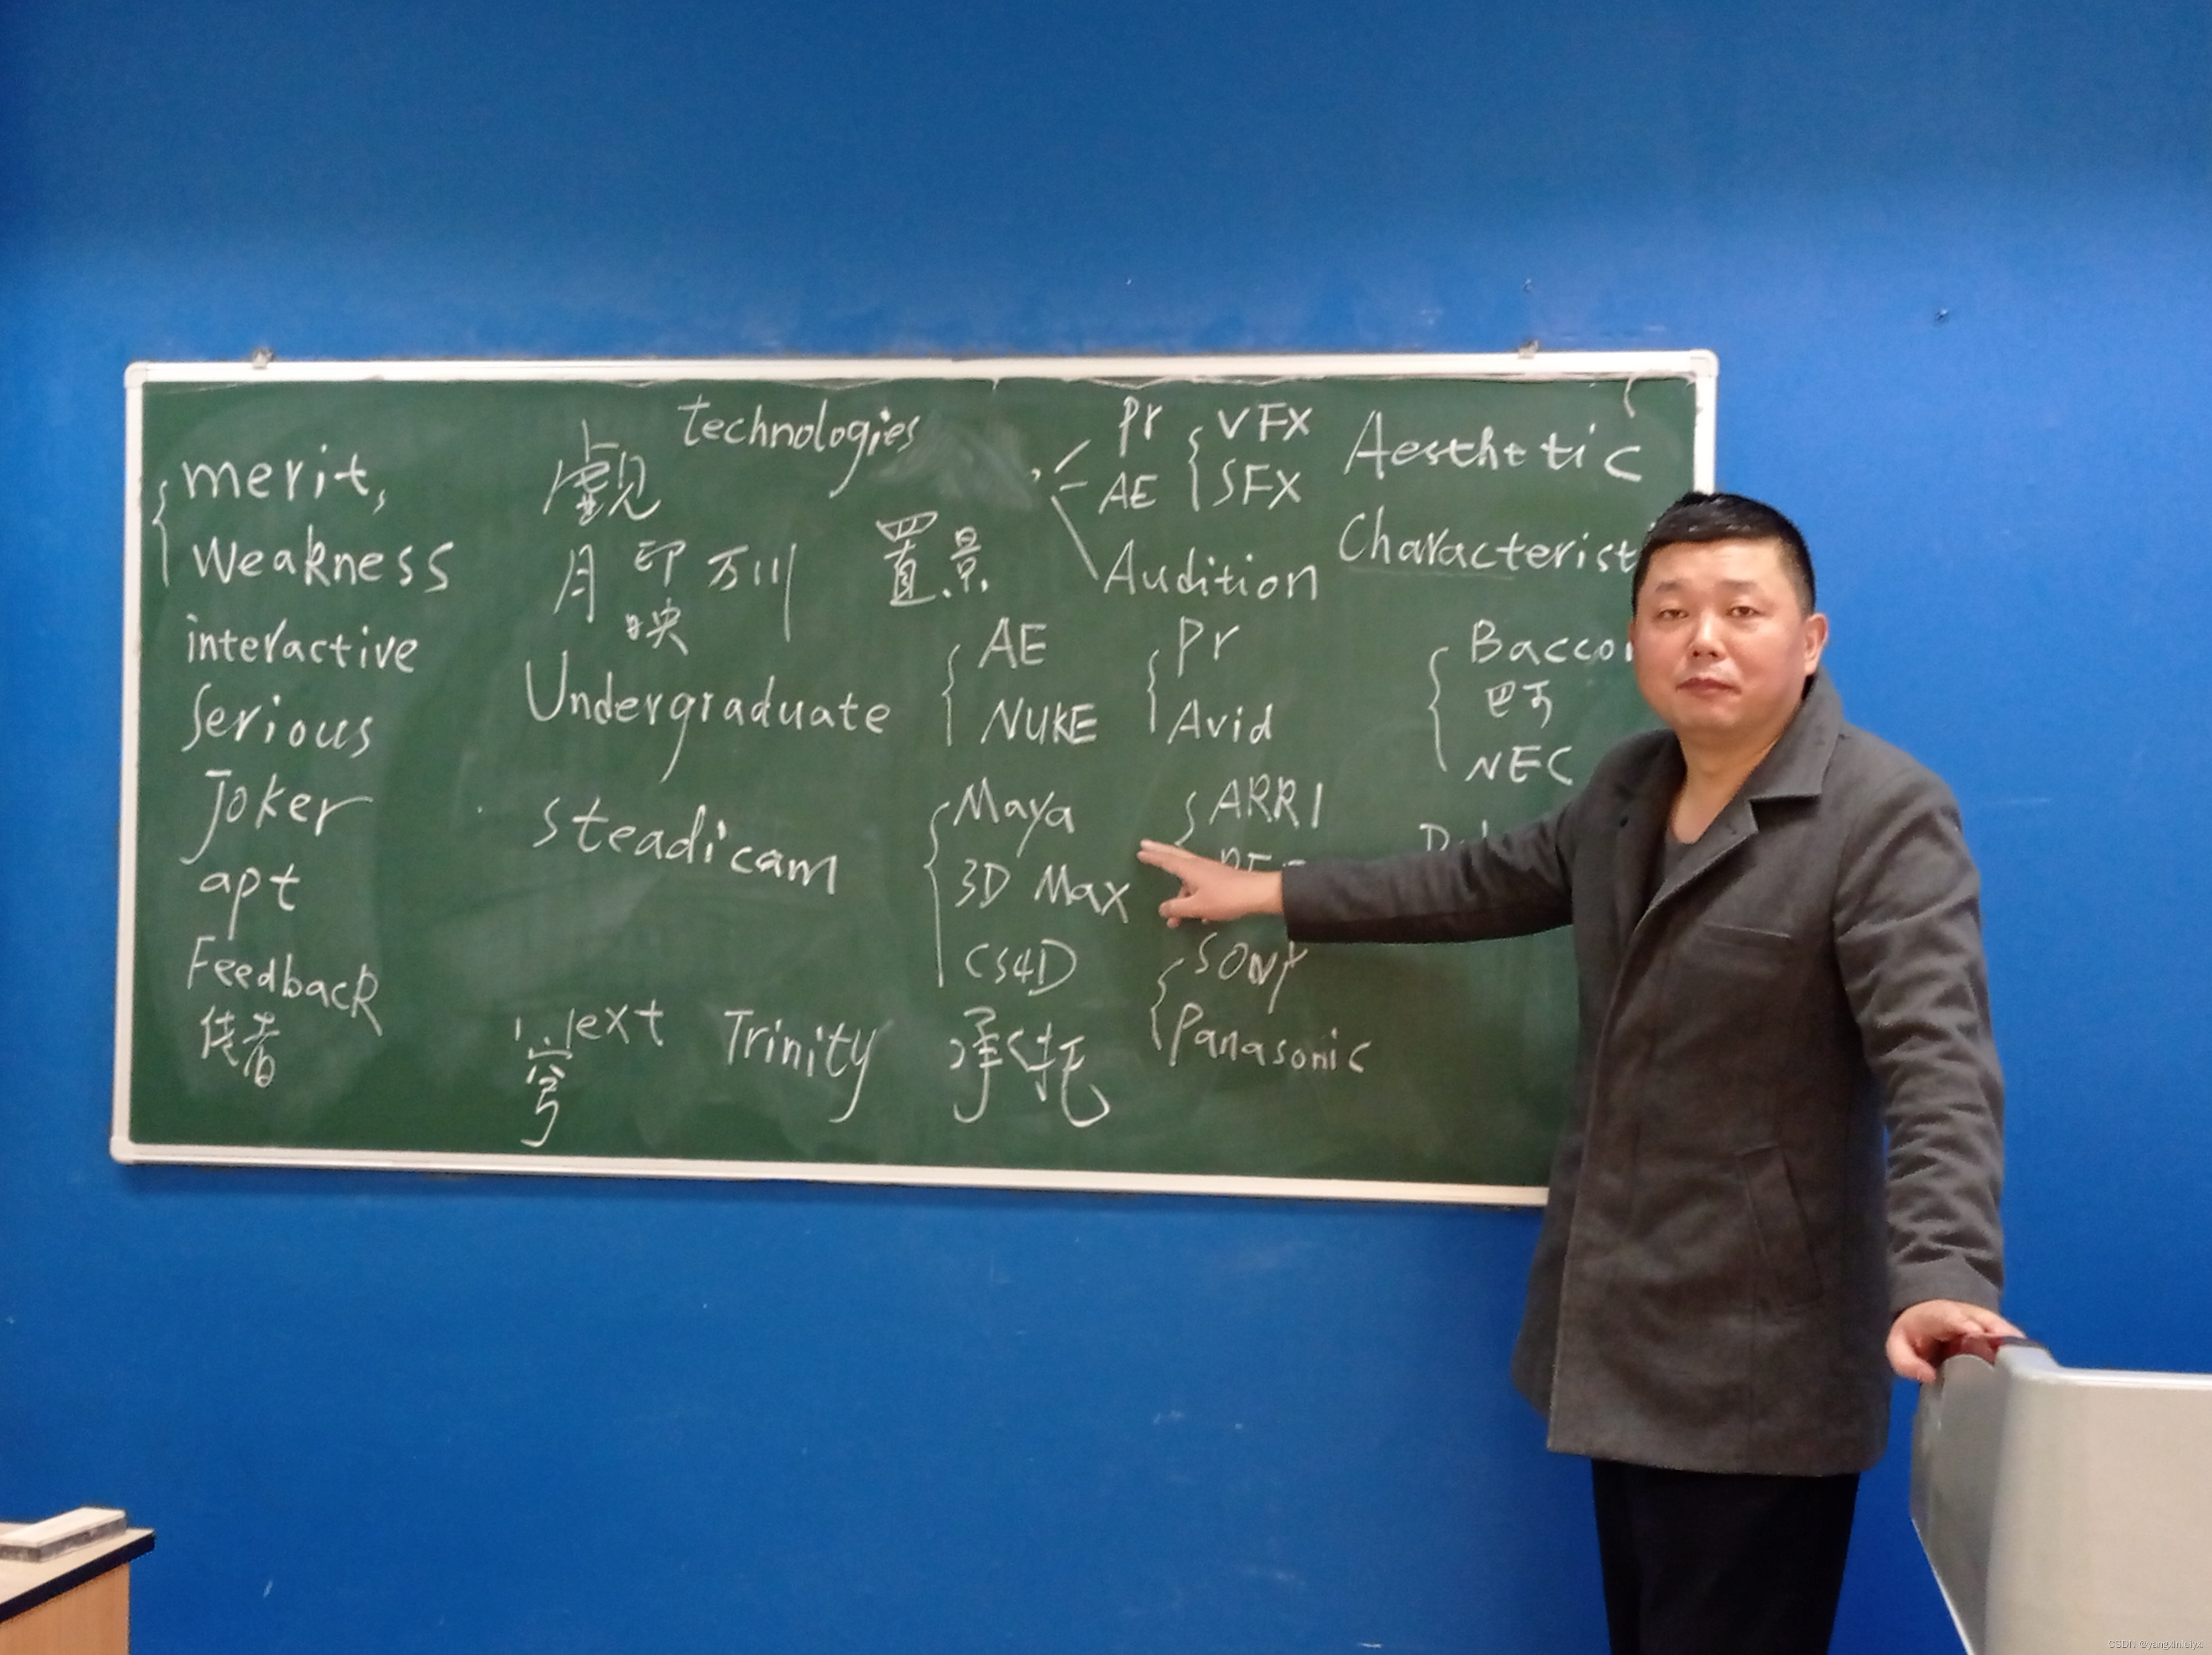 merit,
Weakness
interactive
Serious
Joker
apt
Feedback
technologies
月印万川
映
置景
Undergraduate
steadicam
Text
穹
Trinity
承托
Pr
AE
Audition
VFX
SFX
Aesthetic
Characterist
AE
NUKE
Pr
Avid
Maya
3D Max
CS4D
ARRI
SONY
Panasonic
Bacco
巴可
NEC
CSDN @yangxinleiyxl